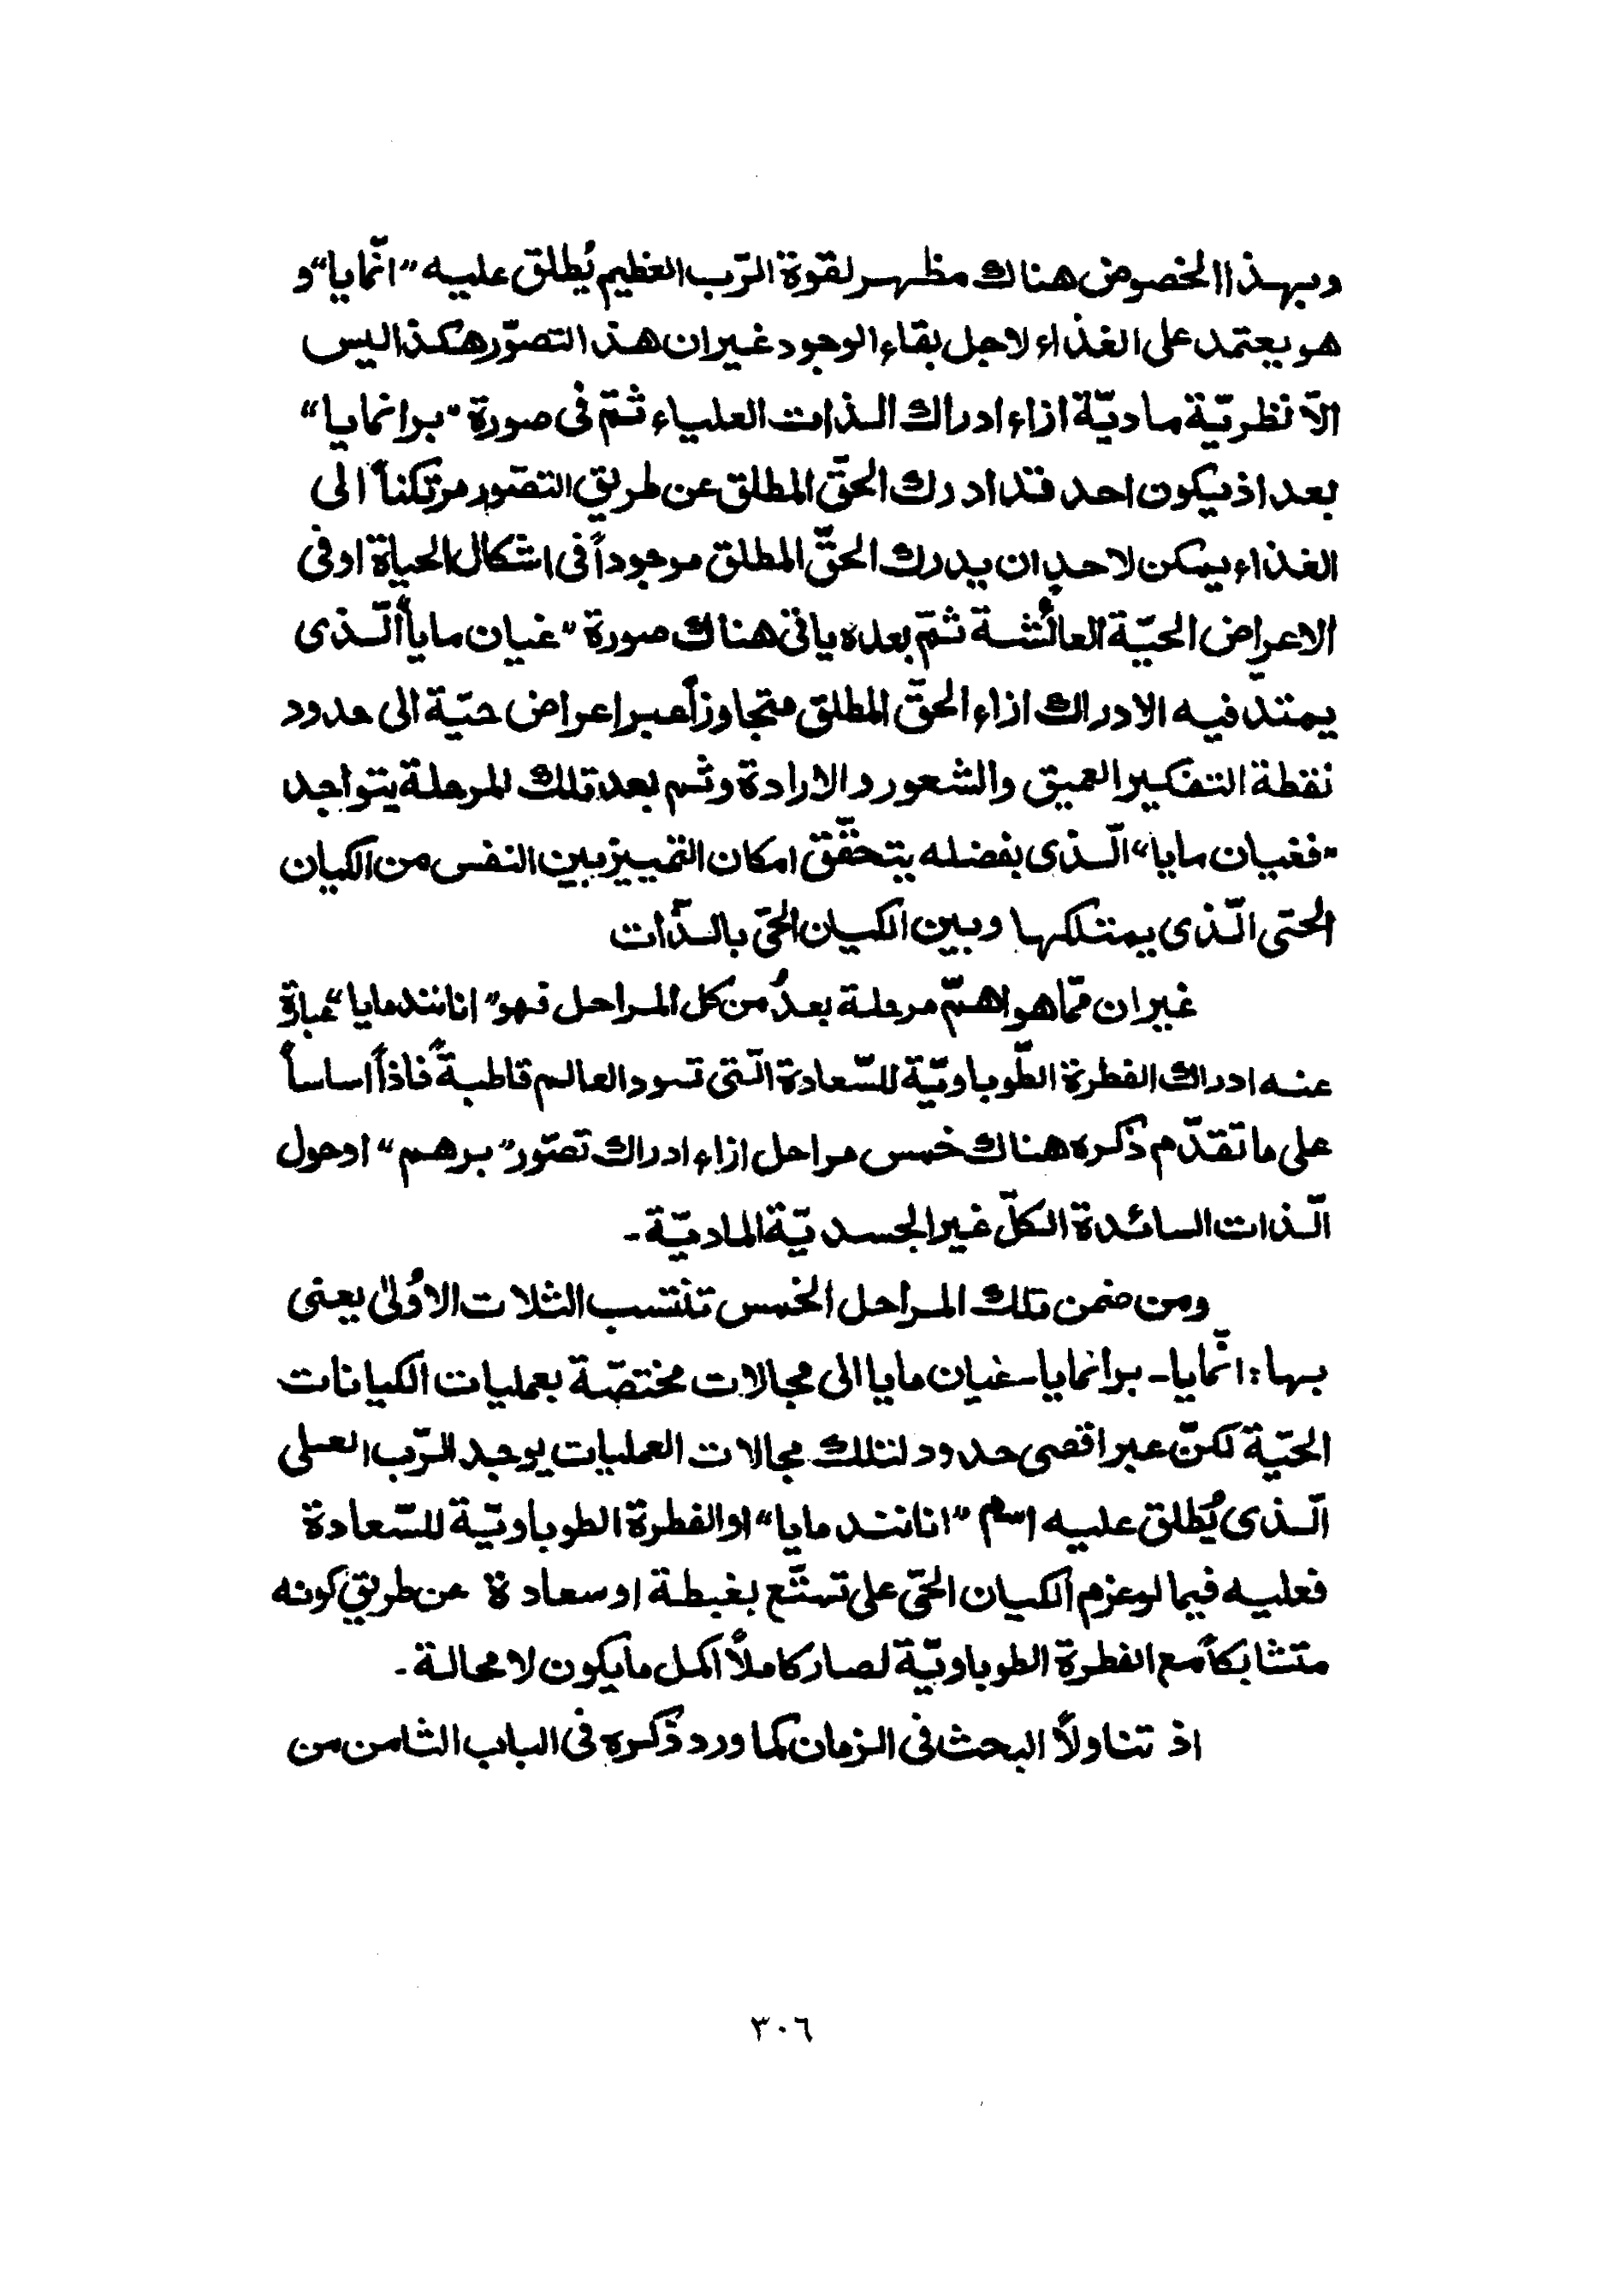 وبهذا الخصوص هناك مظهر لقوة الرّب العظيم يُطلق عليه "انّمايا" و
هو يعتمد على الغذاء لاجل بقاء الوجود غير ان هذا التصوّر هكذا ليس
الاّ نظريّة ماديّة ازاء ادراك الذات العلياء ثمّ فى صورة "برانمايا"
بعد اذ يكون احد قد ادرك الحقّ المطلق عن طريق التصّور مرتكناً الى
الغذاء يمكن لاحد ان يدرك الحقّ المطلق موجوداً فى اشكال الحياة او فى
الاعراض الحيّة العائشة ثمّ بعده ياتى هناك صورة "غيان مايا" الّذى
يمتد فيه الادراك ازاء الحقّ المطلق متجاوزاً عبر اعراض حيّة الى حدود
نقطة التفكير العميق والشعور والارادة وثم بعد تلك المرحلة يتواجد
"فغيان مايا" الّذى بفضله يتحقّق امكان التمييز بين النفس من الكيان
الحتى الّذى يمتلكها وبين الكيان الحىّ بالذّات
غير ان ممّا هو اهمّ مرحلة بعدُ من كل المراحل فهو "انانندمايا" عبارة
عنه ادراك الفطرة الطّوباويّة للسّعادة الّتى تسود العالم قاطبةً فاذاً اساساً
على ما تقدّم ذكره هناك خمس مراحل ازاء ادراك تصّور "برهم" او حول
الّذات السائدة الكلّ غير الجسديّة الماديّة -
ومن ضمن تلك المراحل الخمس تنتسب الثلاث الاُولىٰ يعنى
بها: انّمايا - برانمايا - غيان مايا الى مجالات مختصّة بعمليات الكيانات
الحيّة لكنّ عبر اقصى حدود لتلك مجالات العمليات يوجد الرّب العلى
الّذى يُطلق عليه اسم "انانند مايا" او الفطرة الطوباويّة للسّعادة
فعليه فيما لو عزم الكيان الحىّ على تمتّع بغبطة او سعادة عن طريق كونه
متشابكاً مع الفطرة الطوباويّة لصار كاملاً اكمل ما يكون لا محالة -
اذ تناولاً البحث فى الزمان كما ورد ذكره فى الباب الثامن من
٣٠٦